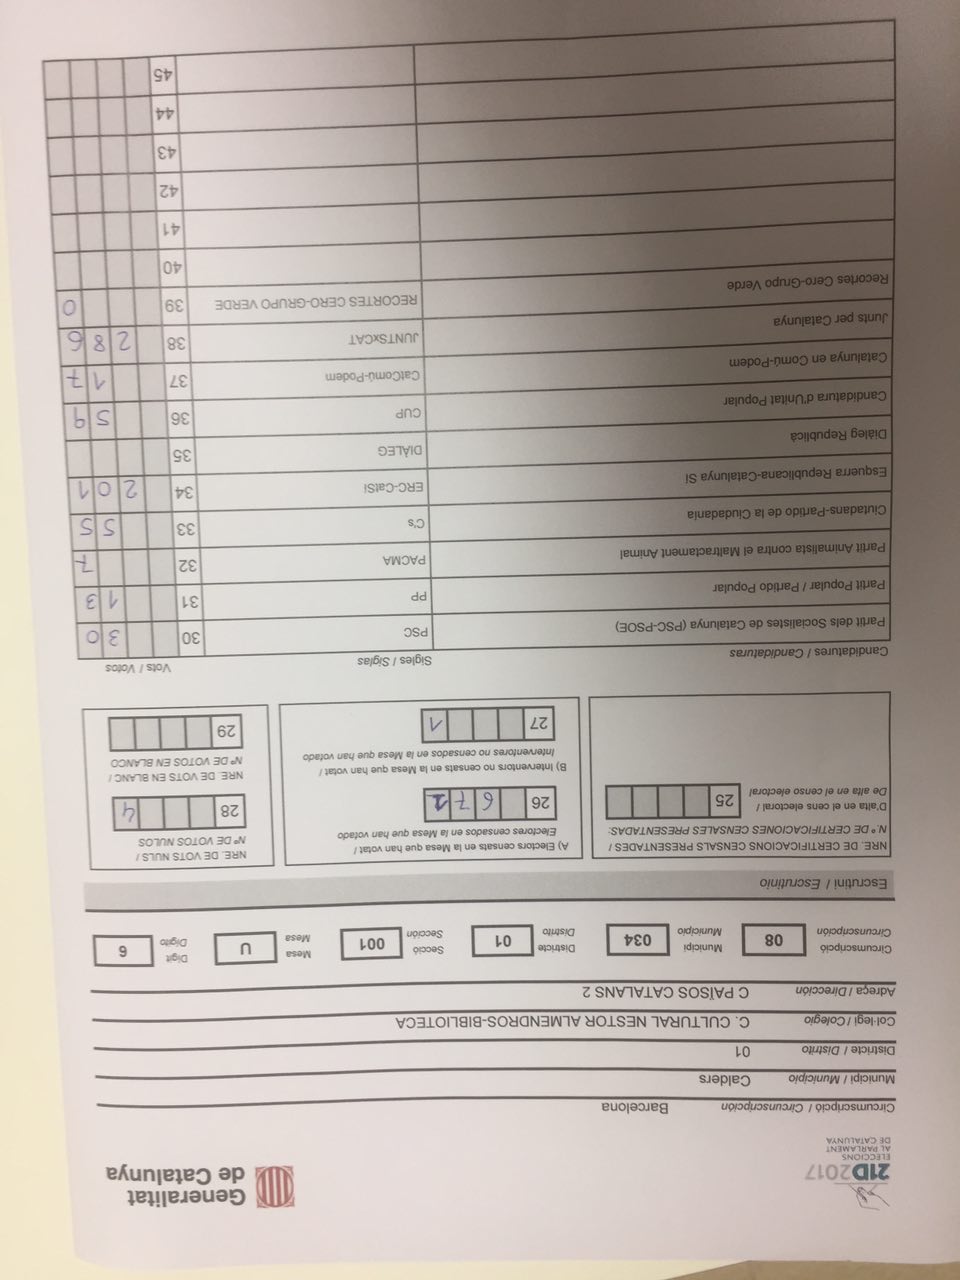 21D2017
ELECCIONS
AL PARLAMENT
DE CATALUNYA
Generalitat
de Catalunya
Circumscripció / Circunscripción Barcelona
Municipi / Municipio Calders
Districte / Distrito 01
Col·legi / Colegio C. CULTURAL NESTOR ALMENDROS-BIBLIOTECA
Adreça / Dirección C PAÏSOS CATALANS 2
Circumscripció Circunscripción 08 Municipi Municipio 034 Districte Distrito 01 Secció Sección 001 Mesa Mesa U Dígit Dígito 6
Escrutini / Escrutinio
NRE. DE CERTIFICACIONS CENSALS PRESENTADES /
N.º DE CERTIFICACIONES CENSALES PRESENTADAS:
D'alta en el cens electoral /
De alta en el censo electoral 25
A) Electors censats en la Mesa que han votat /
Electores censados en la Mesa que han votado
26 671
B) Interventors no censats en la Mesa que han votat /
Interventores no censados en la Mesa que han votado
27 1
NRE. DE VOTS NULS /
Nº DE VOTOS NULOS
28 4
NRE. DE VOTS EN BLANC /
Nº DE VOTOS EN BLANCO
29
Candidatures / Candidaturas Sigles / Siglas Vots / Votos
Partit dels Socialistes de Catalunya (PSC-PSOE) PSC 30 30
Partit Popular / Partido Popular PP 31 13
Partit Animalista contra el Maltractament Animal PACMA 32 7
Ciutadans-Partido de la Ciudadanía C's 33 55
Esquerra Republicana-Catalunya Sí ERC-CatSí 34 201
Diàleg Republicà DIÀLEG 35
Candidatura d'Unitat Popular CUP 36 59
Catalunya en Comú-Podem CatComú-Podem 37 17
Junts per Catalunya JUNTSxCAT 38 286
Recortes Cero-Grupo Verde RECORTES CERO-GRUPO VERDE 39 0
40
41
42
43
44
45